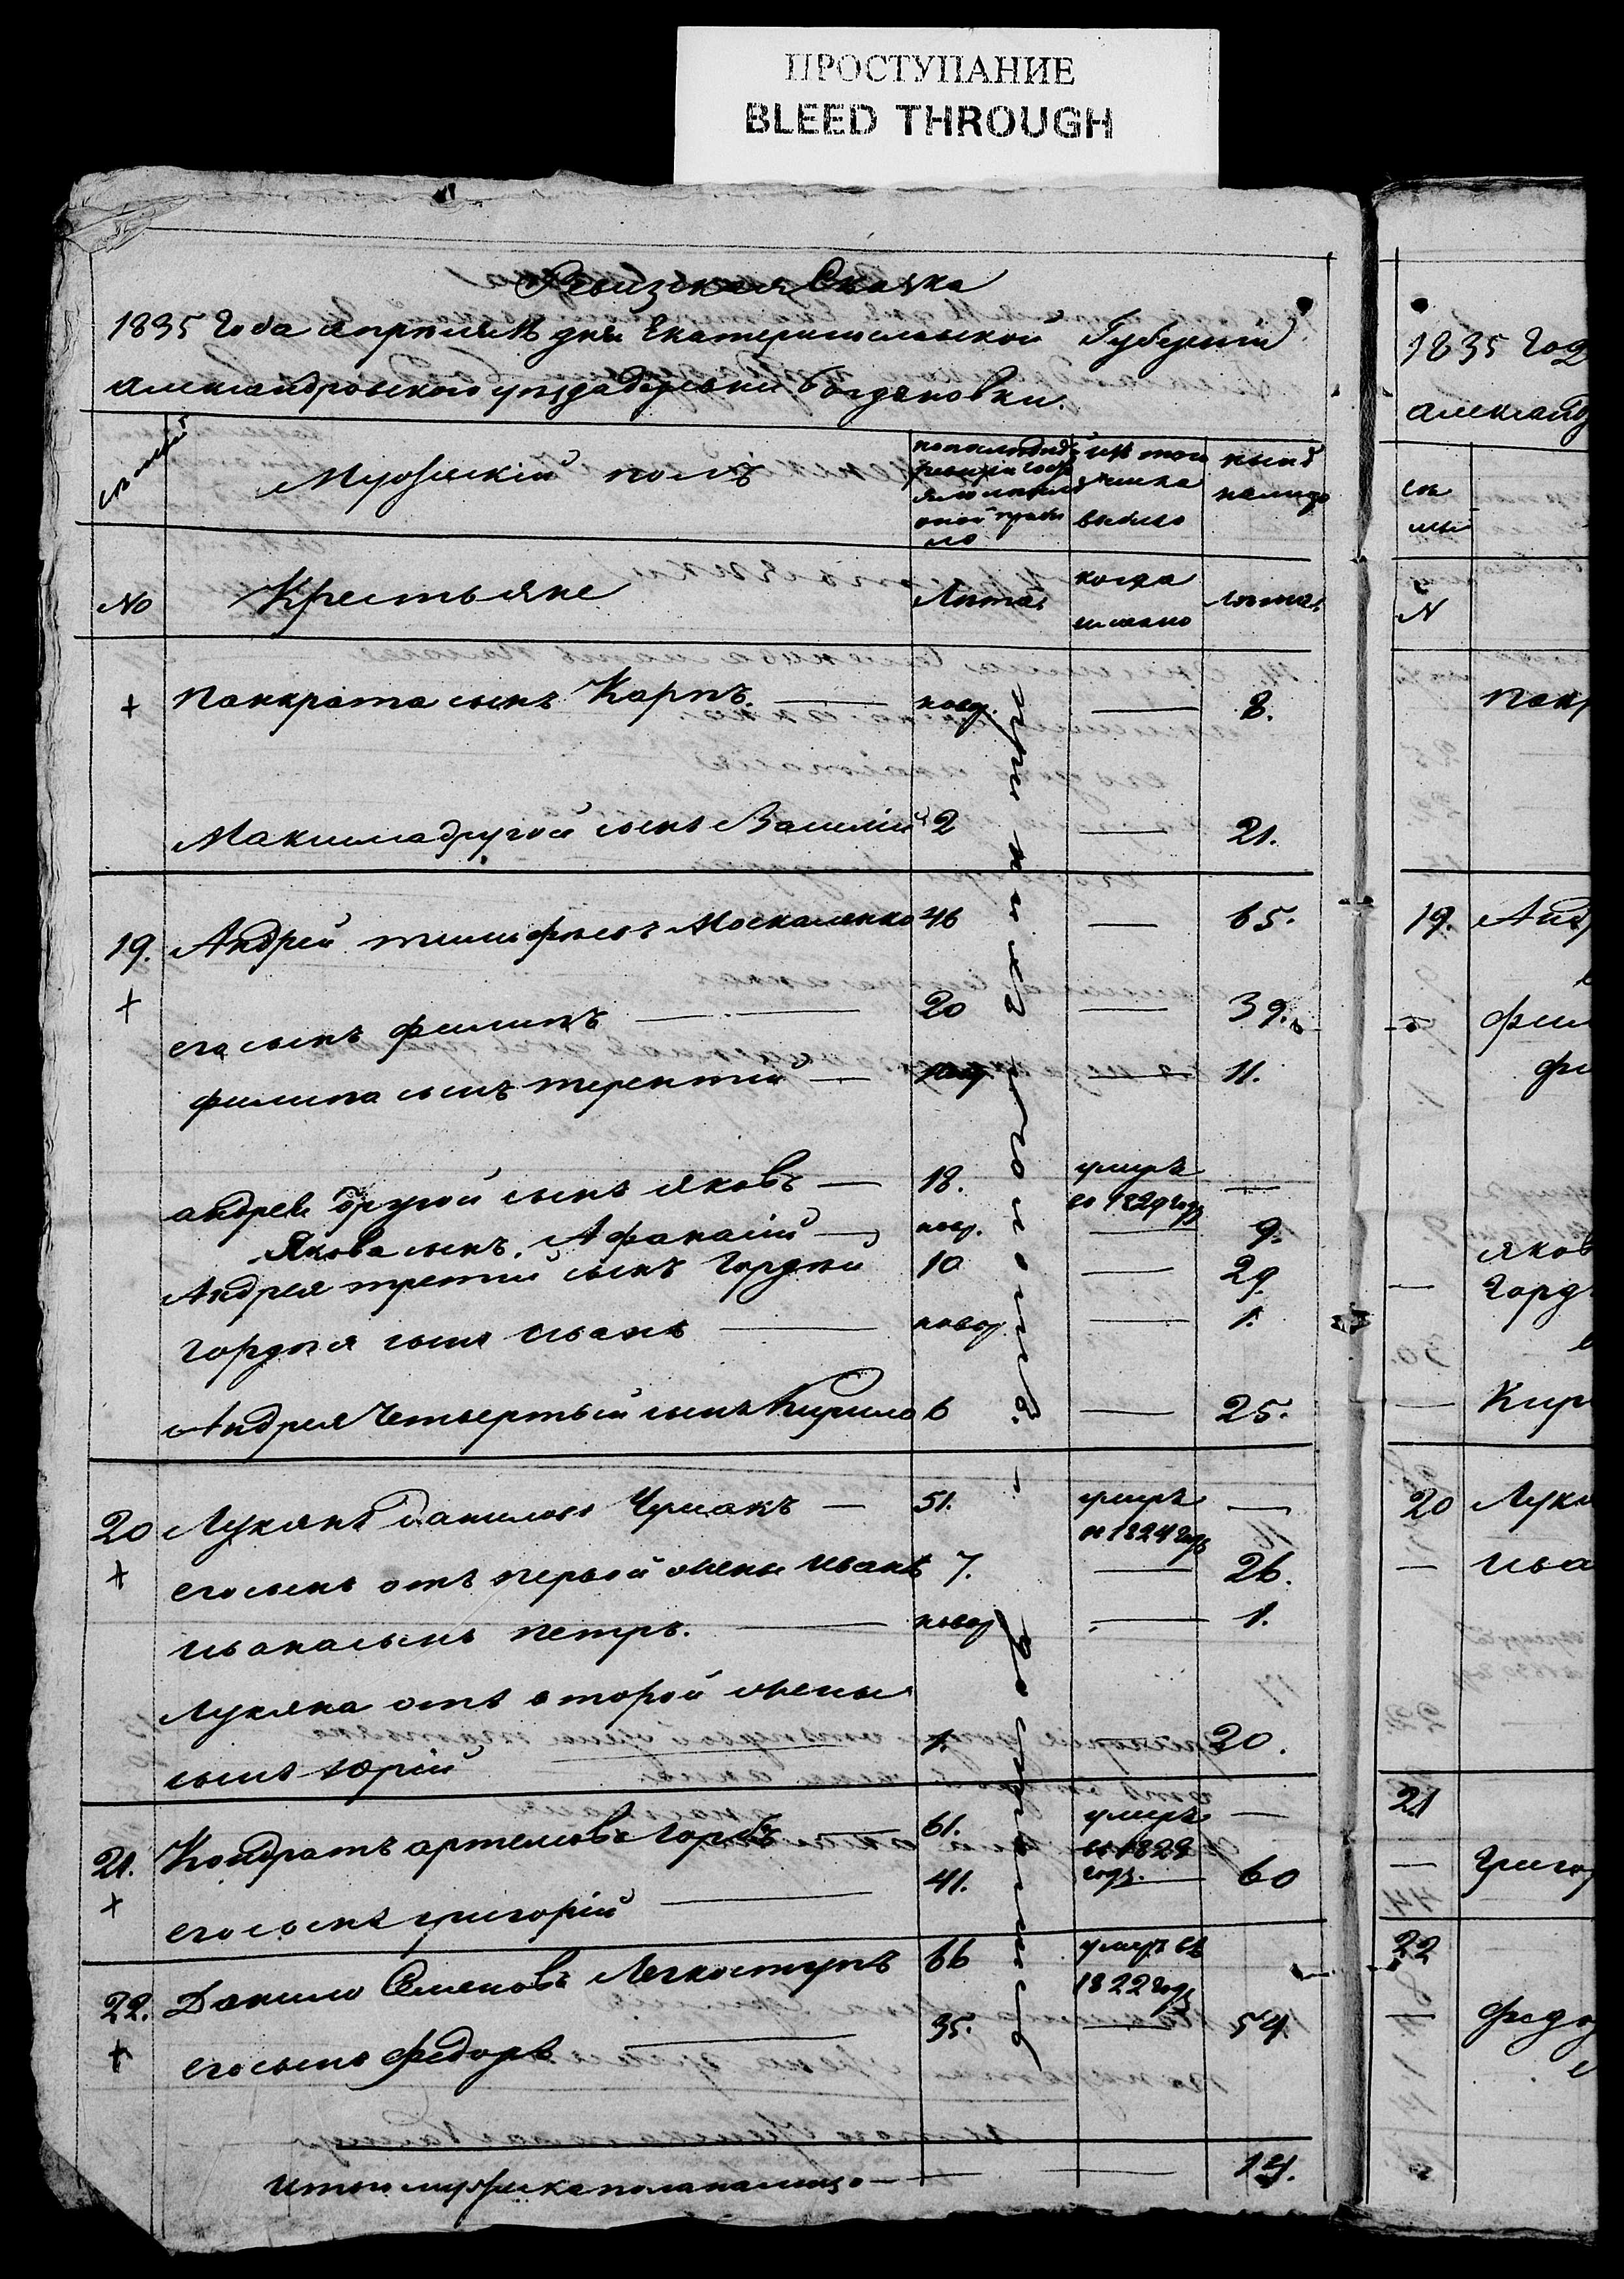 ПРОСТУПАНИЕ
BLEED THROUGH
Ревизская Сказка
1835 Года апреля дня Екатеринославской Губерний
александровского уезда деревни Богдановки.
семьи
Мужеский полъ
по последней ревизии состояло и после оной прибыло
изъ того числа выбыло
ныне налицо
№
Крестьяне
Лета
когда именно
лета
+ Панкрата сынъ Карпъ. — новр. — 8.
Максима другой сынъ Василий 2 — 21.
19. Андрей тимофеевъ Москаленко 46 — 65.
+ его сынъ филипъ — 20 — 39.
филипа сынъ терентий — новр — 11.
андрея другой сынъ яковъ — 18. умеръ во 1829 году —
Якова сынъ Афанасий — новр. — 9.
Андрея третий сынъ Гордей 10 — 29.
гордея сынъ иванъ — новор — 1.
Андрея Четвертый сынъ Кирило 6 — 25.
20 Лукянъ даниловъ Чумакъ — 51. умеръ во 1824 году —
+ его сынъ отъ первой жены иванъ 7. — 26.
ивана сынъ петръ. — новор — 1.
Лукяна отъ второй жены
сынъ юрий — 1. — 20.
21. Кондратъ артемовъ Горбъ — 61. умеръ во 1829 году. —
+ его сынъ григорий — 41. — 60
22. Данило Семеновъ Легкоступъ 66 умеръ въ 1822 году
+ его сынъ федоръ — 35. — 54
итого мужеска пола налицо — — — 14.
1835 Год
александ
се
мьи
№
панк
19. Анд
фил
фи
яков
горд
Кир
20 Лукя
ива
21
Григор
22
федо